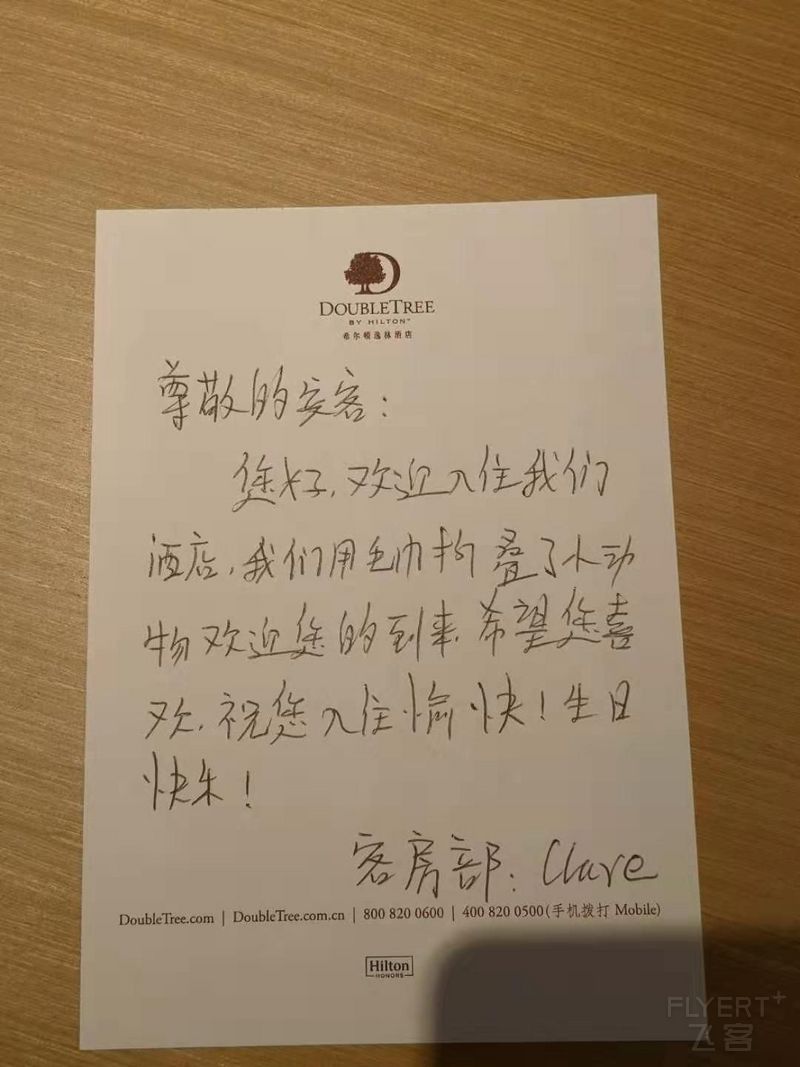 D
DOUBLETREE
BY HILTON™
希尔顿逸林酒店
尊敬的宾客：
您好，欢迎入住我们
酒店，我们用毛巾折叠了小动
物欢迎您的到来，希望您喜
欢，祝您入住愉快！生日
快乐！
客房部：Clare
DoubleTree.com | DoubleTree.com.cn | 800 820 0600 | 400 820 0500(手机拨打 Mobile)
Hilton
HONORS
FLYERT+
飞客